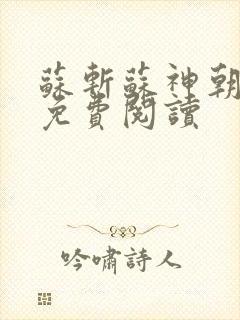 蘇斬蘇神朝
免費閱讀
吟嘯詩人